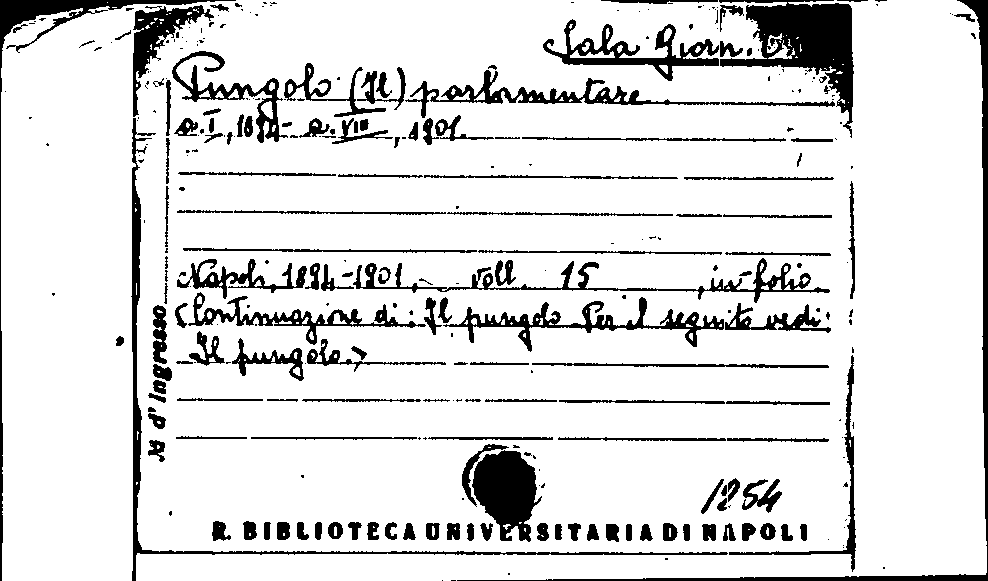 Sala Giorn.
Pungolo (Il) parlamentare.
a. I, 1894 - a. VIII, 1901.
Napoli, 1894-1901, voll. 15, in-folio.
(Continuazione di: Il pungolo. Per il seguito vedi:
Il pungolo.)
N° d'Ingresso
1254
R. BIBLIOTECA UNIVERSITARIA DI NAPOLI